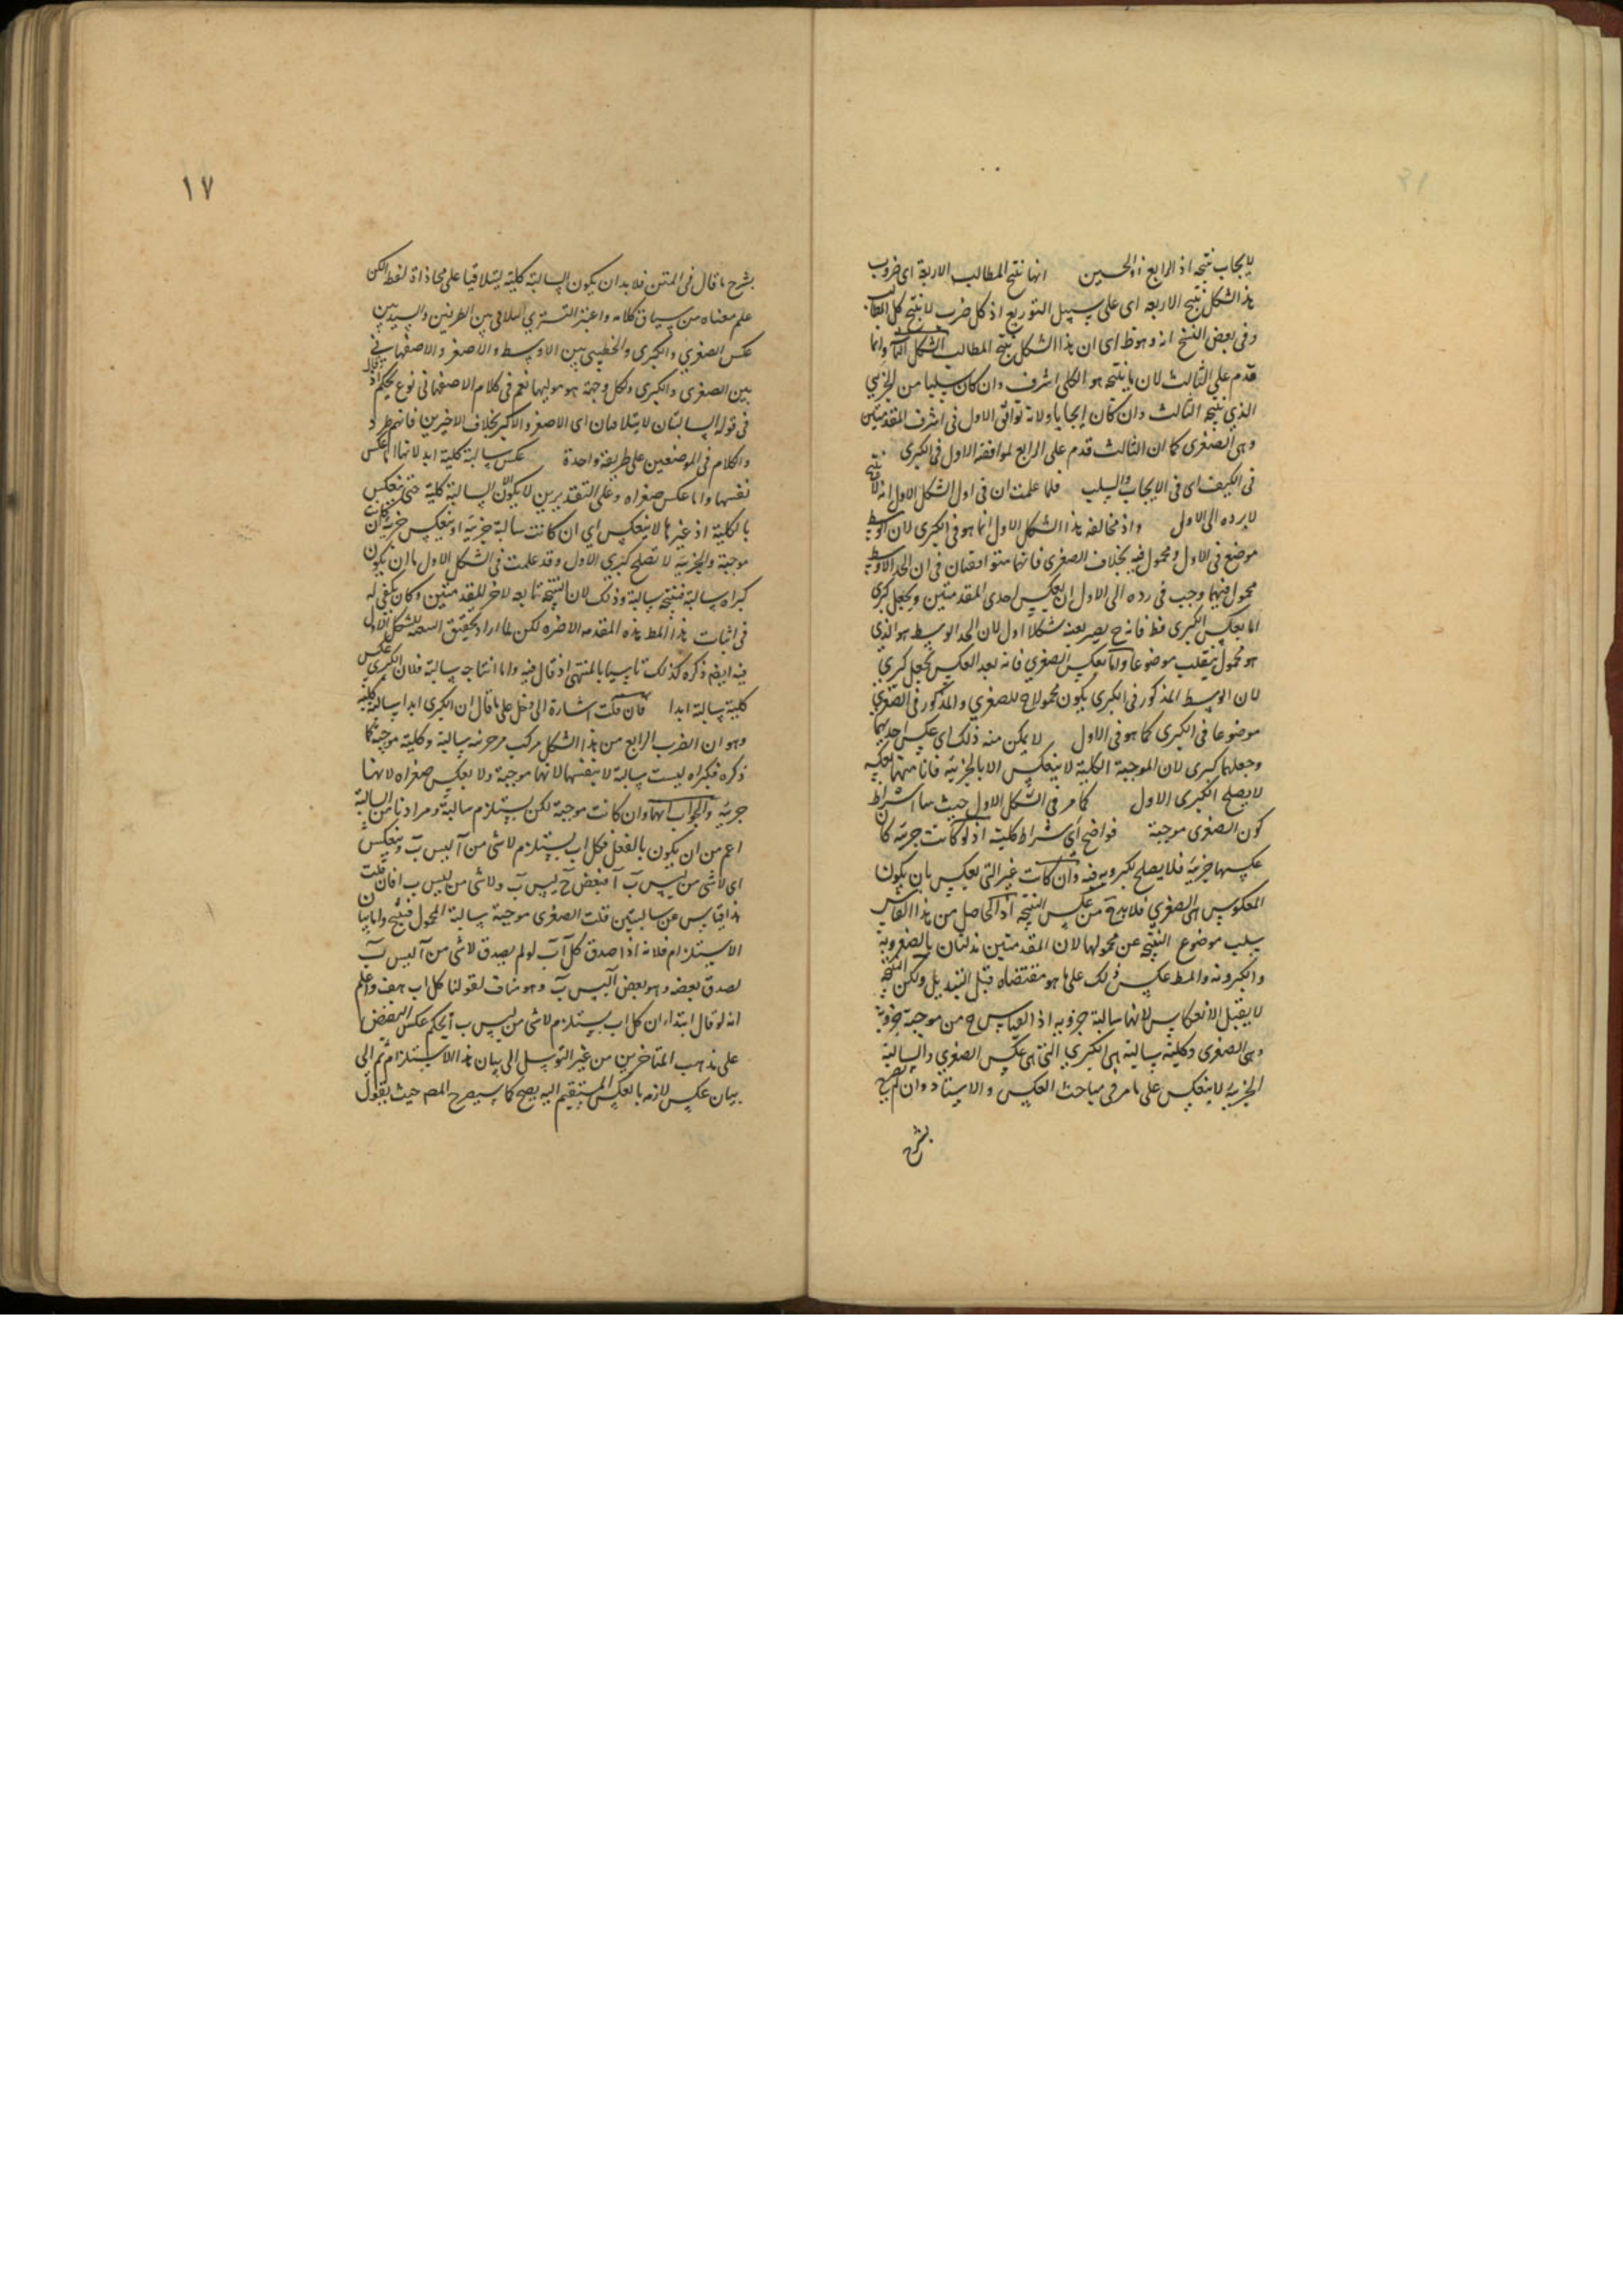 لايجاب نتيجه اذ الرابع انها نتج المطالب الاربعة اى ضروب
هذا الشكل نتج الاربعه اى على سبيل التوزيع اذ كل ضرب لا ينتج كل المطالب
وفى بعض النسخ انه وهو ظ اى ان هذا الشكل نتج المطالب الشكل وانما
قدم على الثالث لان ما ينتجه هو الكلى اشرف وان كان سلبا من الجزئى
الذى ينتجه الثالث وان كان ايجابا ولانه توافق الاول فى اشرف المقدمتين
وهى الصغرى كما ان الثالث قدم على الرابع لموافقة الاول فى الكبرى
فى الكيف اى فى الايجاب والسلب فلما علمت ان فى اول الشكل الاول انه لا ينتج
لا يرده الى الاول واذ مخالفه هذا الشكل الاول انما هو فى الكبرى لان الوسط
موضع فى الاول ومحمول فيه بخلاف الصغرى فانهما متوافقتان فى ان الحد الاوسط
محمول فيهما وجب فى رده الى الاول ان يعكس احدى المقدمتين ويجعل كبرى
اما بعكس الكبرى فظ فانه ح يصير بعينه شكلا اول لان الحد الوسط هو الذى
هو محمول ينقلب موضوعا واما بعكس الصغرى فانه بعد العكس يجعل كبرى
لان الوسط المذكور فى الكبرى يكون محمولا ح للصغرى والمذكور فى الصغرى
موضوعا فى الكبرى كما هو فى الاول لا يمكن منه ذلك اى عكس احديهما
وجعلها كبرى لان الموجبة الكلية لا ينعكس الا بالجزئية
لا يصلح الكبرى الاول كما مر فى الشكل الاول حيث اشتراط
كون الصغرى موجبة فواضح اى اشتراط كلية اذ لو كانت جزئية كان
عكسها جزئية فلا يصلح لكبرويه فيه وان كانت غير التى بعكس بان يكون
المعكوس هى الصغرى فلا بد من عكس النتيجه اذ الحاصل من هذا القياس
سلب موضوع النتيجة عن محمولها لان المقدمتين بالصغروية
والكبروية والمط عكس ذلك على ما هو مقتضاه قبل التبديل ولكن النتيجة
لا يقبل الانعكاس لانها سالبة جزويه اذ القياس ح من موجبة جزوية
وهى الصغرى وكلية سالبة هى الكبرى التى هى عكس الصغرى والسالبة
الجزئية لا ينعكس على ما مر فى مباحث العكس والاستاد وان لم يصرح
بشرح
١٧
بشرح ما قال فى المتن فلا بد ان يكون السالبة كلية ليتلاقيا على محاذاة لفظ لكن
علم معناه من سياق كلامه واعتبر التسترى التلاقى بين الطرفين والسيد بين
عكس الصغرى والكبرى والخطيبى بين الاوسط والاصغر والاصفهانى
بين الصغرى والكبرى ولكل وجهة هو موليها نعم فى كلام الاصفهانى نوع تحكم اذ
فى قوله السالبتان لا يتلاقيان اى الاصغر والاكبر بخلاف الاخيرين فانهم طرد
والكلام فى الموضعين على طريقة واحدة عكس سالبة كلية ابدا لانها اما عكس
نفسها واما عكس صغراه وعلى التقديرين لا يكون الا السالبة كلية حتى ينعكس
بالكلية اذ غيرها لا ينعكس اى ان كانت سالبة جزئية او ينعكس جزئية ان كانت
موجبة والجزئية لا تصلح كبرى الاول وقد علمت فى الشكل الاول ما ان يكون
كبراه سالبة فنتيجته سالبة وذلك لان النتيجة تابعه لاخر المقدمتين وكان يكفى له
فى اثبات هذا المط هذه المقدمه الاخره لكن لما اراد تحقيق للشكل الاول
فيه ايضا ذكره كذلك تاسيا بالمنتهى اذ قال فيه واما انتاجه سالبة فلان الكبرى عكس
كلية سالبة ابدا فان قلت اشارة الى دخل على ما قال ان الكبرى ابدا سالبة كلية
وهو ان الضرب الرابع من هذا الشكل مركب من جزئيه سالبة وكلية موجبة كما
ذكره فكبراه ليست سالبة لا بنفسها لانها موجبة ولا بعكس صغراه لانها
جزئية والجواب انها وان كانت موجبة لكن يستلزم سالبة ومرادنا من السالبة
اعم من ان يكون بالفعل فكل اب يستلزم لاشى من آ ليس ب وينعكس
اى لاشى من ليس ب آ فبعض ج ليس ب ولاشى من ليس ب ا فان قلت
هذا قياس عن سالبتين قلت الصغرى موجبة سالبة المحمول فينتج واما بيان
الاستلزام فلانه اذا صدق كل آب لو لم يصدق لاشى من آ ليس ب
لصدق بعضه وهو بعض آ ليس ب وهو مناف لقولنا كل اب هف واعلم
انه لو قال ابتداء ان كل اب يستلزم لاشى من ليس ب آ بحكم عكس النقيض
على مذهب المتاخرين من غير التوسل الى بيان هذا الاستلزام ثم الى
بيان عكس لازمه بالعكس المستقيم اليه يصح كما سيصرح المصر حيث يقول